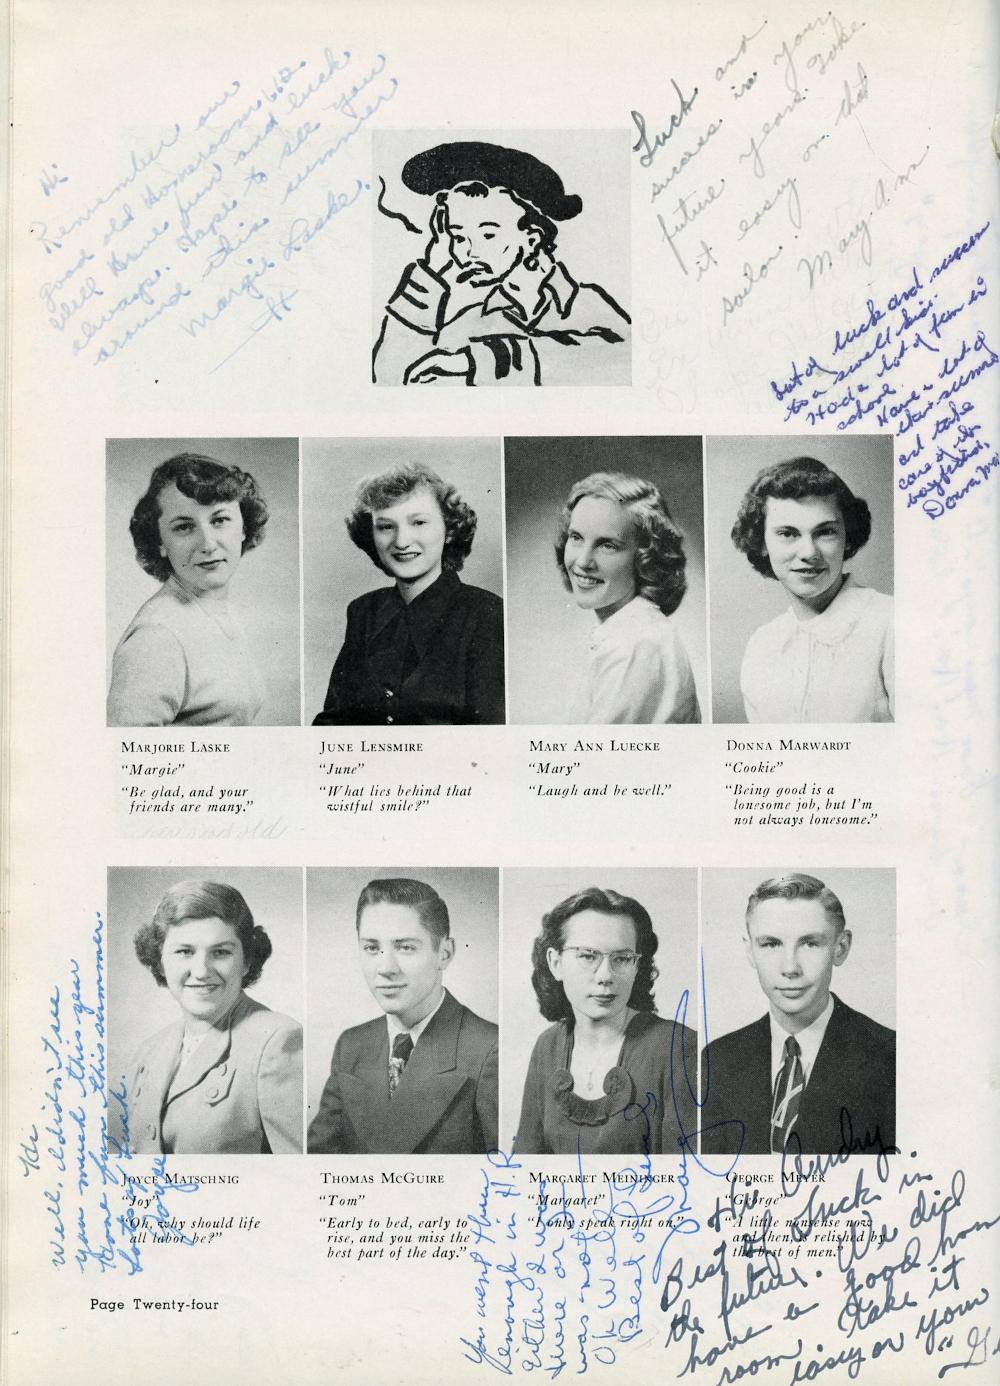 Hi
Remember our
good old Homeroom 116.
Well Have fun and luck
always. Hope to see you
around this summer
Margie Laske.
Luck and
success in your
future years. Take
it easy on that
sailor.
Mary Ann
Lot of luck and success
to a swell kid.
Had a lot of fun in
school.
Have a lot of
this summer
and take
care of the
boyfriend,
Donna Mar
MARJORIE LASKE
"Margie"
"Be glad, and your
friends are many."
JUNE LENSMIRE
"June"
"What lies behind that
wistful smile?"
MARY ANN LUECKE
"Mary"
"Laugh and be well."
DONNA MARWARDT
"Cookie"
"Being good is a
lonesome job, but I'm
not always lonesome."
Hi
Well, I didn't see
you much this year
Have fun this summer.
Lots of Luck.
Joyce
JOYCE MATSCHNIG
"Joy"
"Oh, why should life
all labor be?"
THOMAS MCGUIRE
"Tom"
"Early to bed, early to
rise, and you miss the
best part of the day."
MARGARET MEININGER
"Margaret"
"I only speak right on."
GEORGE MEYER
"George"
"A little nonsense now
and then, is relished by
the best of men."
You went thru
enough in H.R.
Either I was
there or
was not
Oh Well
Best of
Hi
Best of luck in
the future. We did
have a good home
room. Take it
easy on your
Page Twenty-four